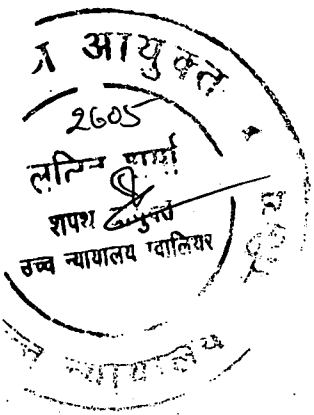 आयुक्त
2605
ललित शर्मा
शपथ आयुक्त
उच्च न्यायालय ग्वालियर
न्यायालय